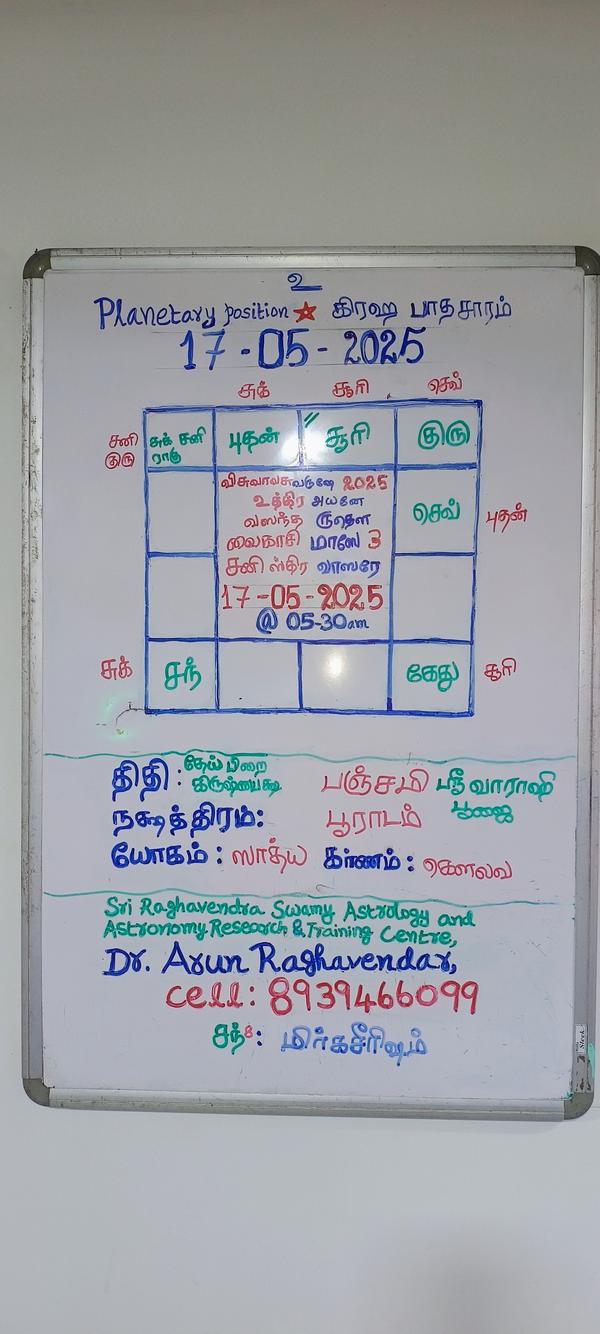 உ
Planetary position ★ கிரஹ பாதசாரம்
17-05-2025
சுக் சூரி செவ்
சனி குரு
சுக் சனி ராகு புதன் சூரி குரு
விசுவாவசுவருஷே 2025
உத்திர அயனே
வஸந்த ருதௌ
வைகாசி மாஸே 3
சனி ஸ்திர வாஸரே
17-05-2025
@ 05-30am
செவ் புதன்
சுக் சந் கேது சூரி
திதி: தேய்பிறை கிருஷ்ணபக்ஷ பஞ்சமி ஸ்ரீ வாராஹி பூஜை
நக்ஷத்திரம்: பூராடம்
யோகம்: ஸாத்ய கர்ணம்: கௌலவ
Sri Raghavendra Swamy Astrology and
Astronomy Research & Training Centre,
Dr. Arun Raghavendar,
cell: 8939466099
சந்8: மிர்கசீரிஷம்